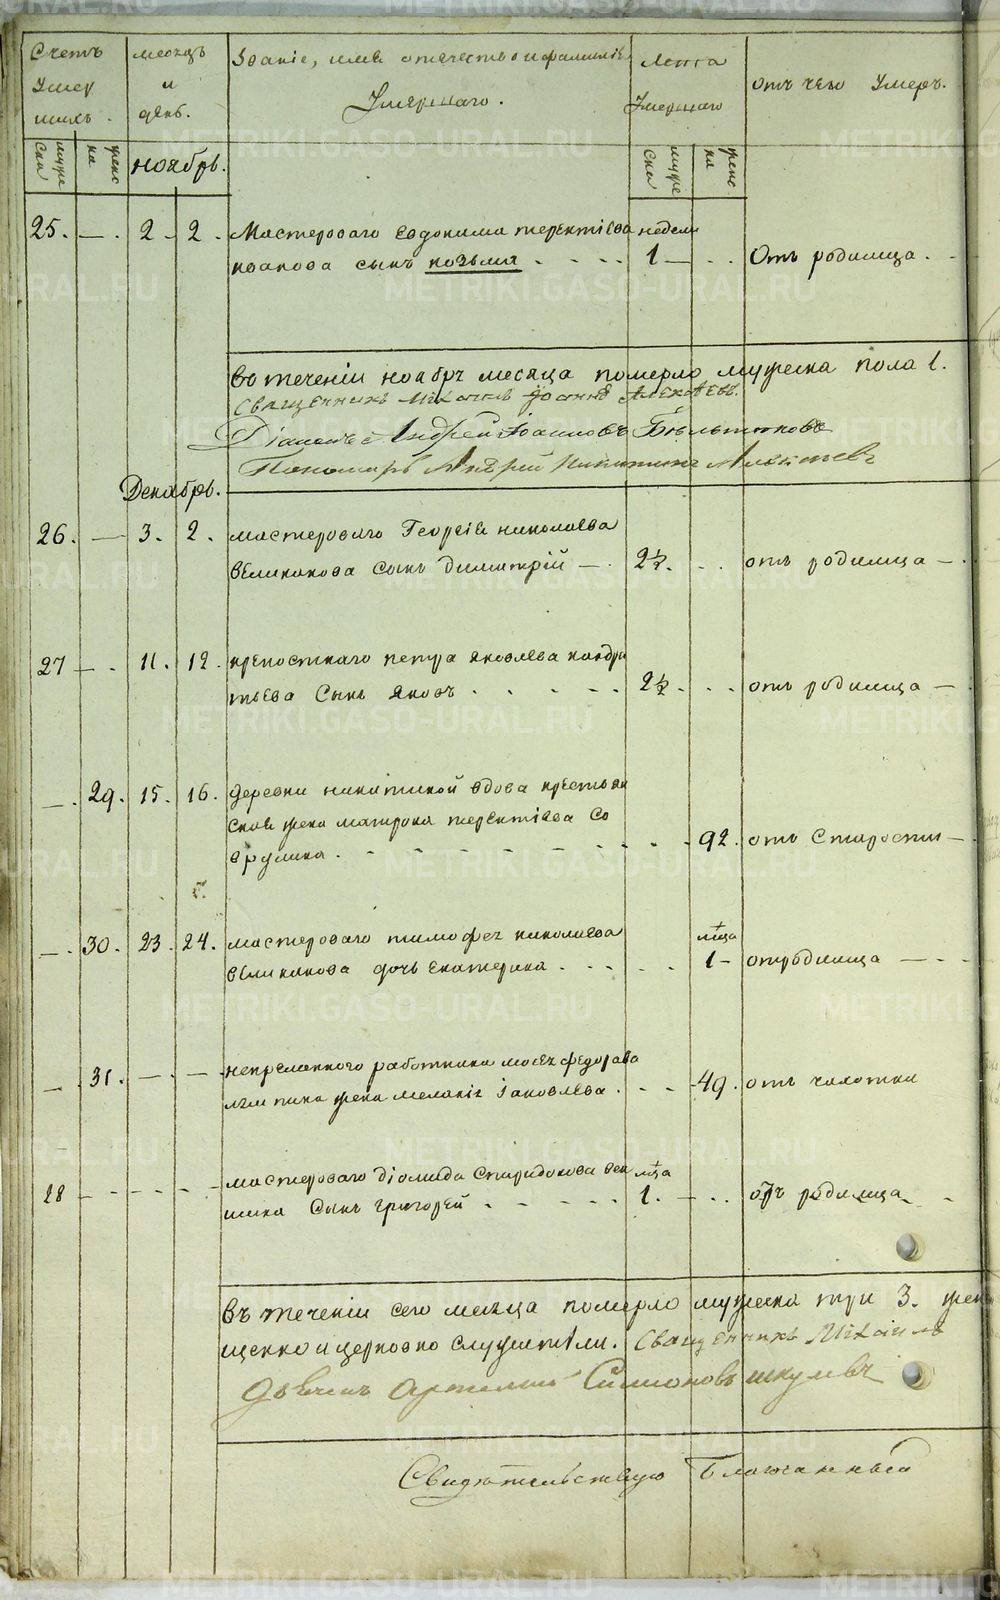 Счетъ умер шихъ.
месяцъ и день.
Званіе, имя отечество и фамилія умершаго.
лета умершаго
отъ чего умеръ.
муже ска
женс ка
ноябрь.
муже ска
женс ка
25. — . 2 - 2. Мастероваго евдокима терентіева недели
иванова сынъ козьма . . . . 1 — . . Отъ родимца . .
во теченіи ноябрь месяца померло мужеска пола 1.
Священникъ Михаилъ Іоанно Алексеевъ.
Діаконъ Андрей Іоанновъ Бѣльтюковъ
Пономарь Андрей Никитинъ
Декабрь.
26. — 3. 2. мастероваго Георгіа николаева
великанова сынъ димитрій — . 2½. . . отъ родимца — .
27 — . 11. 12. крепостнаго петра яковлева кондра
тьева сынъ яковъ . . . . . 2½. . . отъ родимца — .
— . 29. 15. 16. деревни никитиной вдова крестьян
ская жена матрона терентіева со
врулина . - - - - - - - . . 92. отъ старости —
— . 30. 23. 24. мастероваго тимофея николаева м҃ца
великанова дочь екатерина . . . . . 1 - отродимца — - -
— 31. — . — . непременнаго работника мосея федорава
жена меланія іаковлева . - - 49. отъ чахотки
28 - - - - - - мастероваго діомида спиридонова м҃ца
шина сынъ григорей . . . . . 1. — . . отъ родимца - .
въ теченіи сего месяца померло мужеска три 3. жен
щенно и церковно служители. Священникъ Михаилъ
дьячекъ Артемий Симионовъ
Свидѣтельствую Благочинный